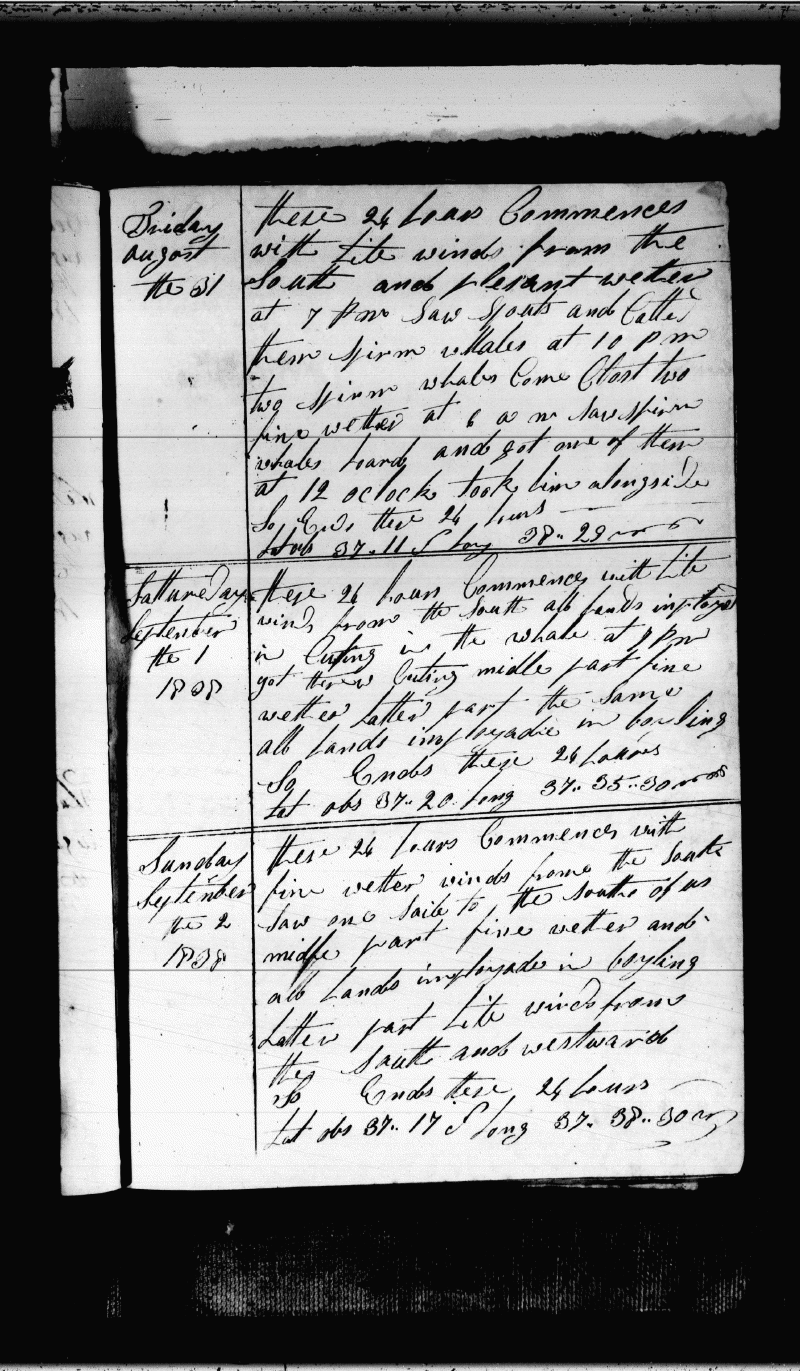 Friday
august
the 31
these 24 hours Commences
with Lite winds from the
South and plesant wether
at 7 P m Saw Spouts and Called
them spirm whales at 10 P m
two spirm whales Come Clost two
fine wether at 6 a m Saw spirm
whales and got one of them
at 12 oclock took him alongside
So Ends these 24 hours
Lat obs 37.. 11 S long 38.. 28
Satturday
September
the 1
1838
these 24 hours Commences with Lite
winds from the South all hands imployed
in Cuting in the whale at P m
got threw Cuting midle part fine
wether Latter part the Same
all hands imployade in boyling
So Ends these 24 hours
Lat obs 37.. 20 Long 37.. 35..30
Sunday
September
the 2
1838
these 24 hours Commences with
fine wether winds frome the South
Saw one Saile to the South of us
midle part fine wether and
all hands imployade in boyling
Latter part Lite winds from
the South and westward
So Ends these 24 hours
Lat obs 37.. 17 S long 37.. 38..30